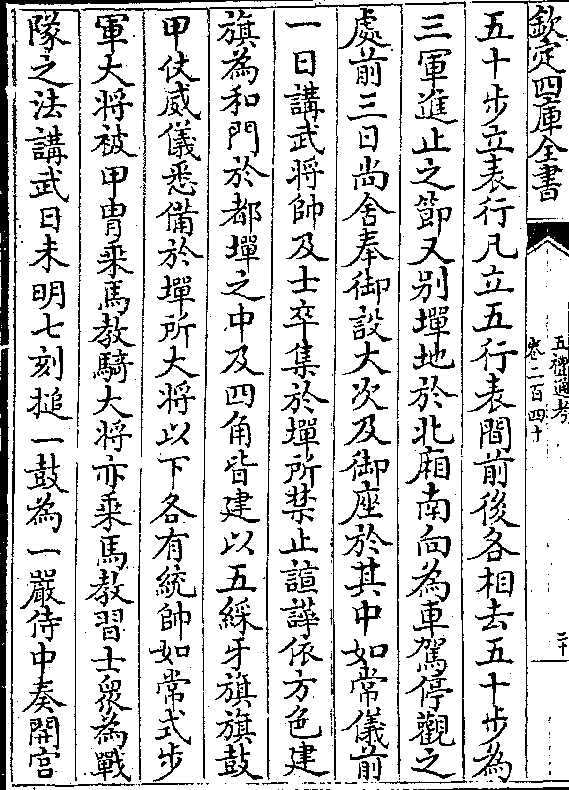 欽定四庫全書
五禮通考
卷二百四十
二十
五十步立表行凡立五行表間前後各相去五十步為
三軍進止之節又别墠地於北廂南向為車駕停觀之
處前三日尚舍奉御設大次及御座於其中如常儀前
一日講武將帥及士卒集於墠所禁止諠譁依方色建
旗為和門於都墠之中及四角皆建以五綵牙旗旗鼓
甲仗威儀悉備於墠所大将以下各有統帥如常式步
軍大将被甲胄乘馬教騎大将亦乘馬教習士衆為戰
隊之法講武日未明七刻搥一鼓為一嚴侍中奏開宫